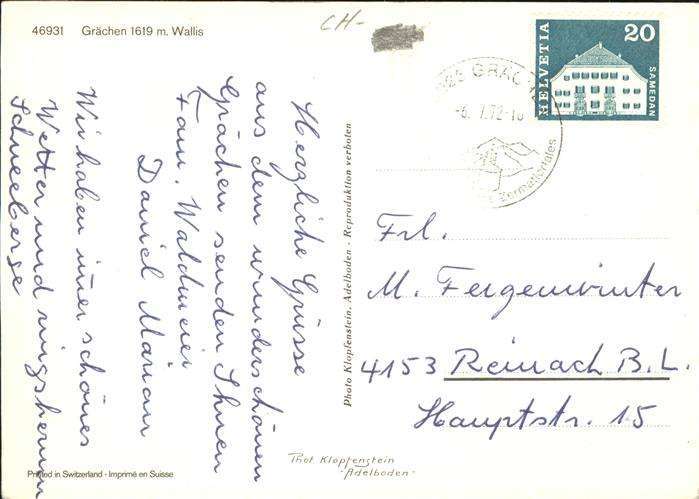 46931 Grächen 1619 m. Wallis
CH-
HELVETIA
20
SAMEDAN
GRÄC
-6. 1.72-10
Herzliche Grüsse
aus dem wunderschönen
Grächen senden Ihnen
Fam. Waldmeier
Daniel Marian
Wir haben imer schönes
Wetter und ringsherum
Schneeberge
Photo Klopfenstein, Adelboden - Reproduktion verboten
Frl.
M. Fergenwinter
4153 Reinach B.L.
Hauptstr. 15
Phot Klopfenstein
-Adelboden-
Printed in Switzerland - Imprimé en Suisse